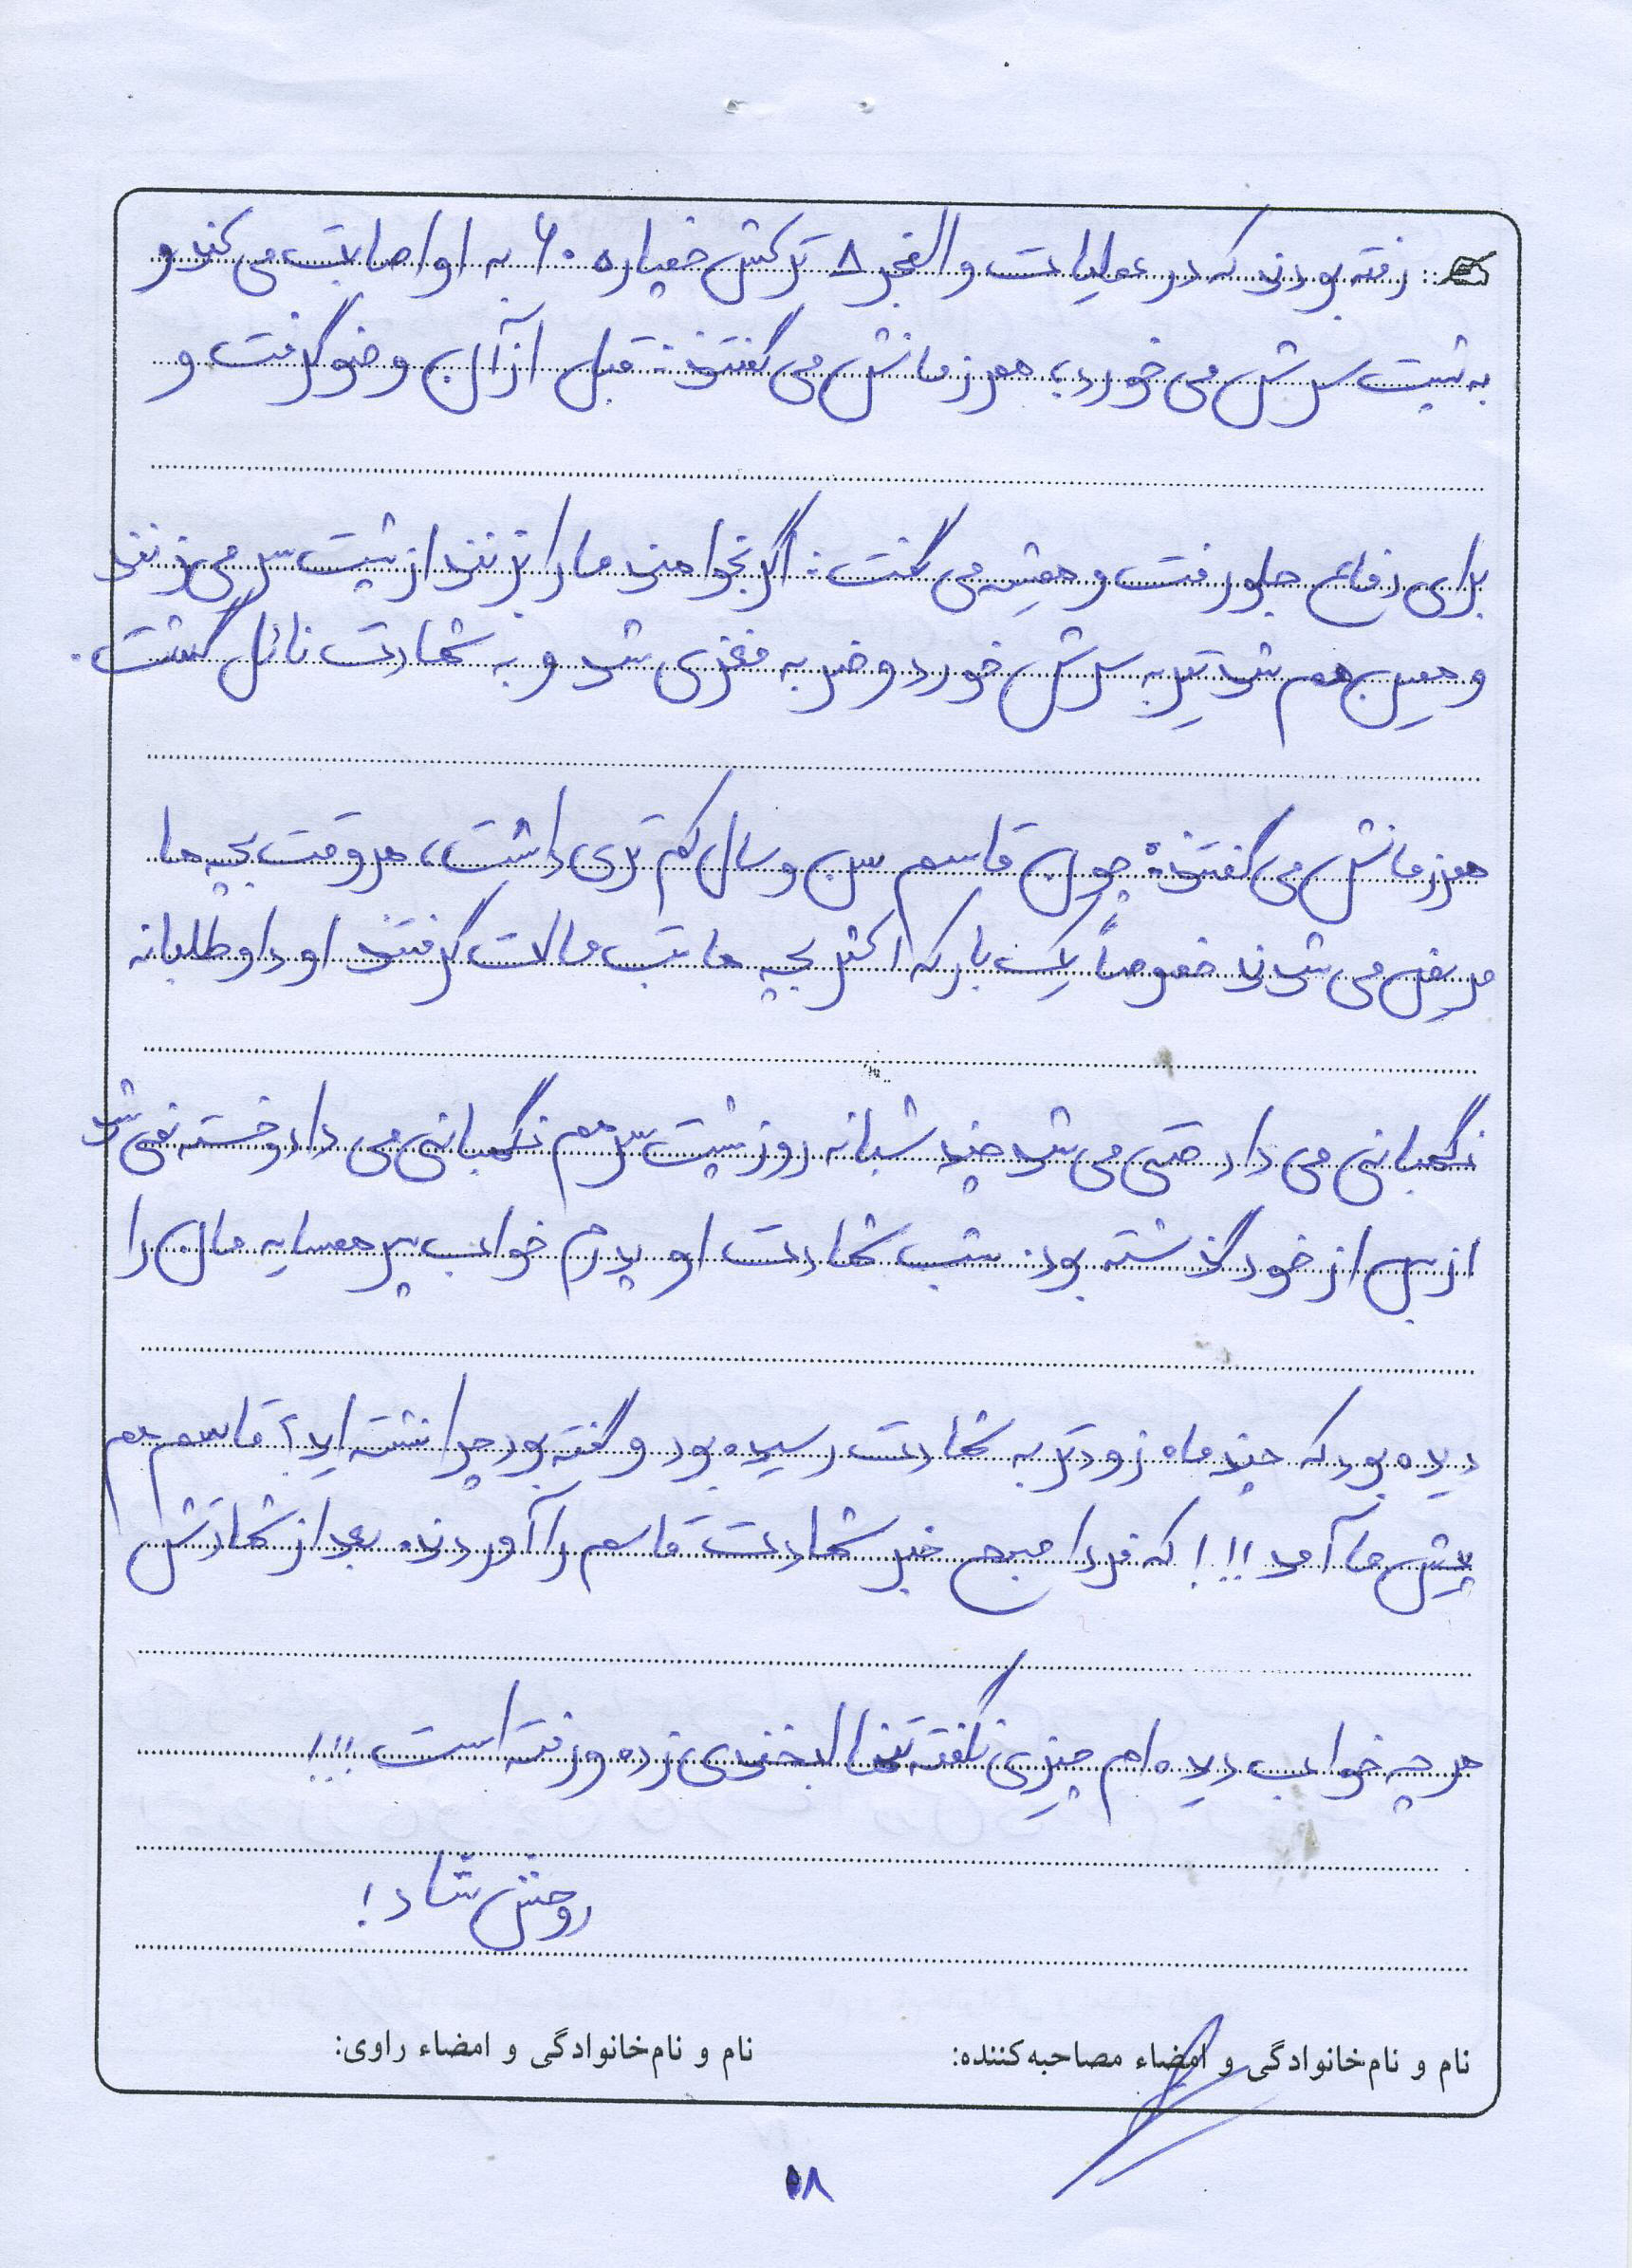 رفته بودند که در عملیات والفجر ۸ ترکش خمپاره ۶۰ به او اصابت می کند و
به پشت سرش می خورد، همرزمانش می گفتند: قبل از آن وضو گرفت و
برای دفاع جلو رفت و همیشه می گفت: اگر بخواهند ما را بزنند از پشت سر می زنند
و همین هم شد تیر به سرش خورد و ضربه مغزی شد و به شهادت نائل گشت.
همرزمانش می گفتند: چون قاسم سن و سال کم تری داشت، هر وقت بچه ها
مریض می شدند خصوصاً یک بار که اکثر بچه ها تب مالت گرفتند او داوطلبانه
نگهبانی می داد حتی می شد چند شبانه روز پشت سر هم نگهبانی می داد و خسته نمی شد
از بس از خود گذشته بود. شب شهادت او پدرم خواب پسر همسایه مان را
دیده بود که چند ماه زودتر به شهادت رسیده بود و گفته بود چرا نشسته اید؟ قاسم هم
پیش ما آمد!!! که فردا صبح خبر شهادت قاسم را آوردند. بعد از شهادتش
هر چه خواب دیده ام چیزی نگفته تنها لبخندی زده و رفته است!!!
روحش شاد!
نام و نام‌خانوادگی و امضاء مصاحبه‌کننده: نام و نام‌خانوادگی و امضاء راوی: